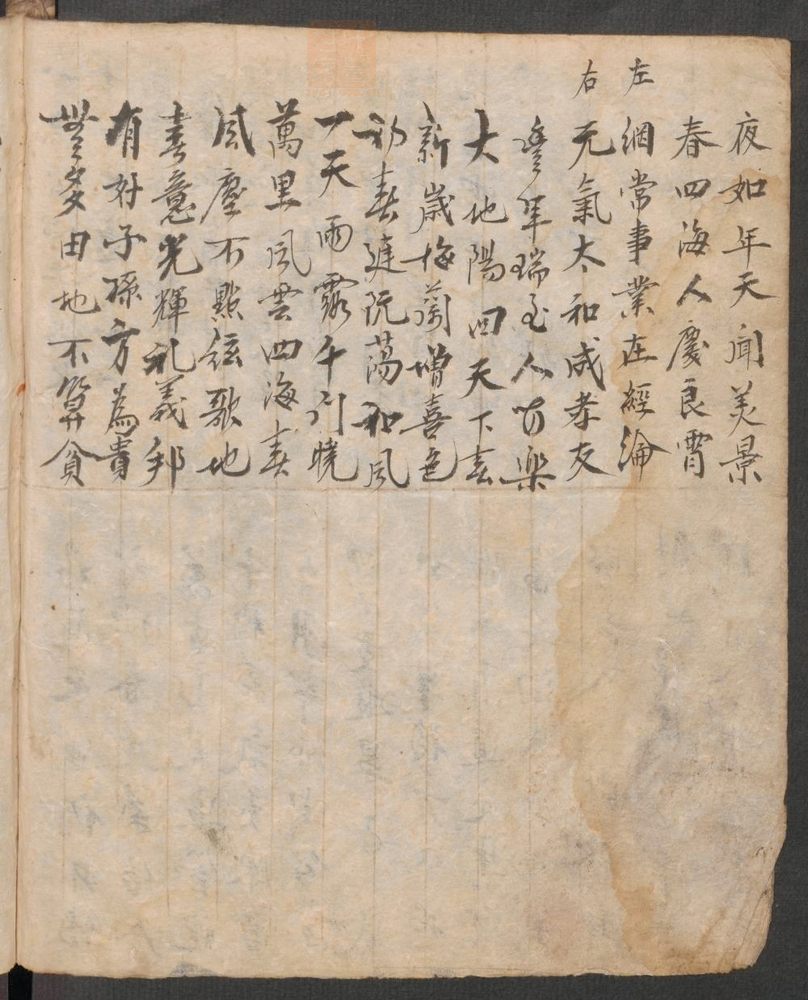 夜如年天開美景
春四海人慶良霄
左
綱常事業在經綸
右
元氣太和成孝友
豐年瑞至人皆樂
大地陽回天下春
新歲梅蘭增喜色
初春造阮蕩和風
一天雨露千門曉
萬里風雲四海春
風塵不點弦歌地
春意光輝礼義邦
有好子孫方為貴
無多田地不算貧